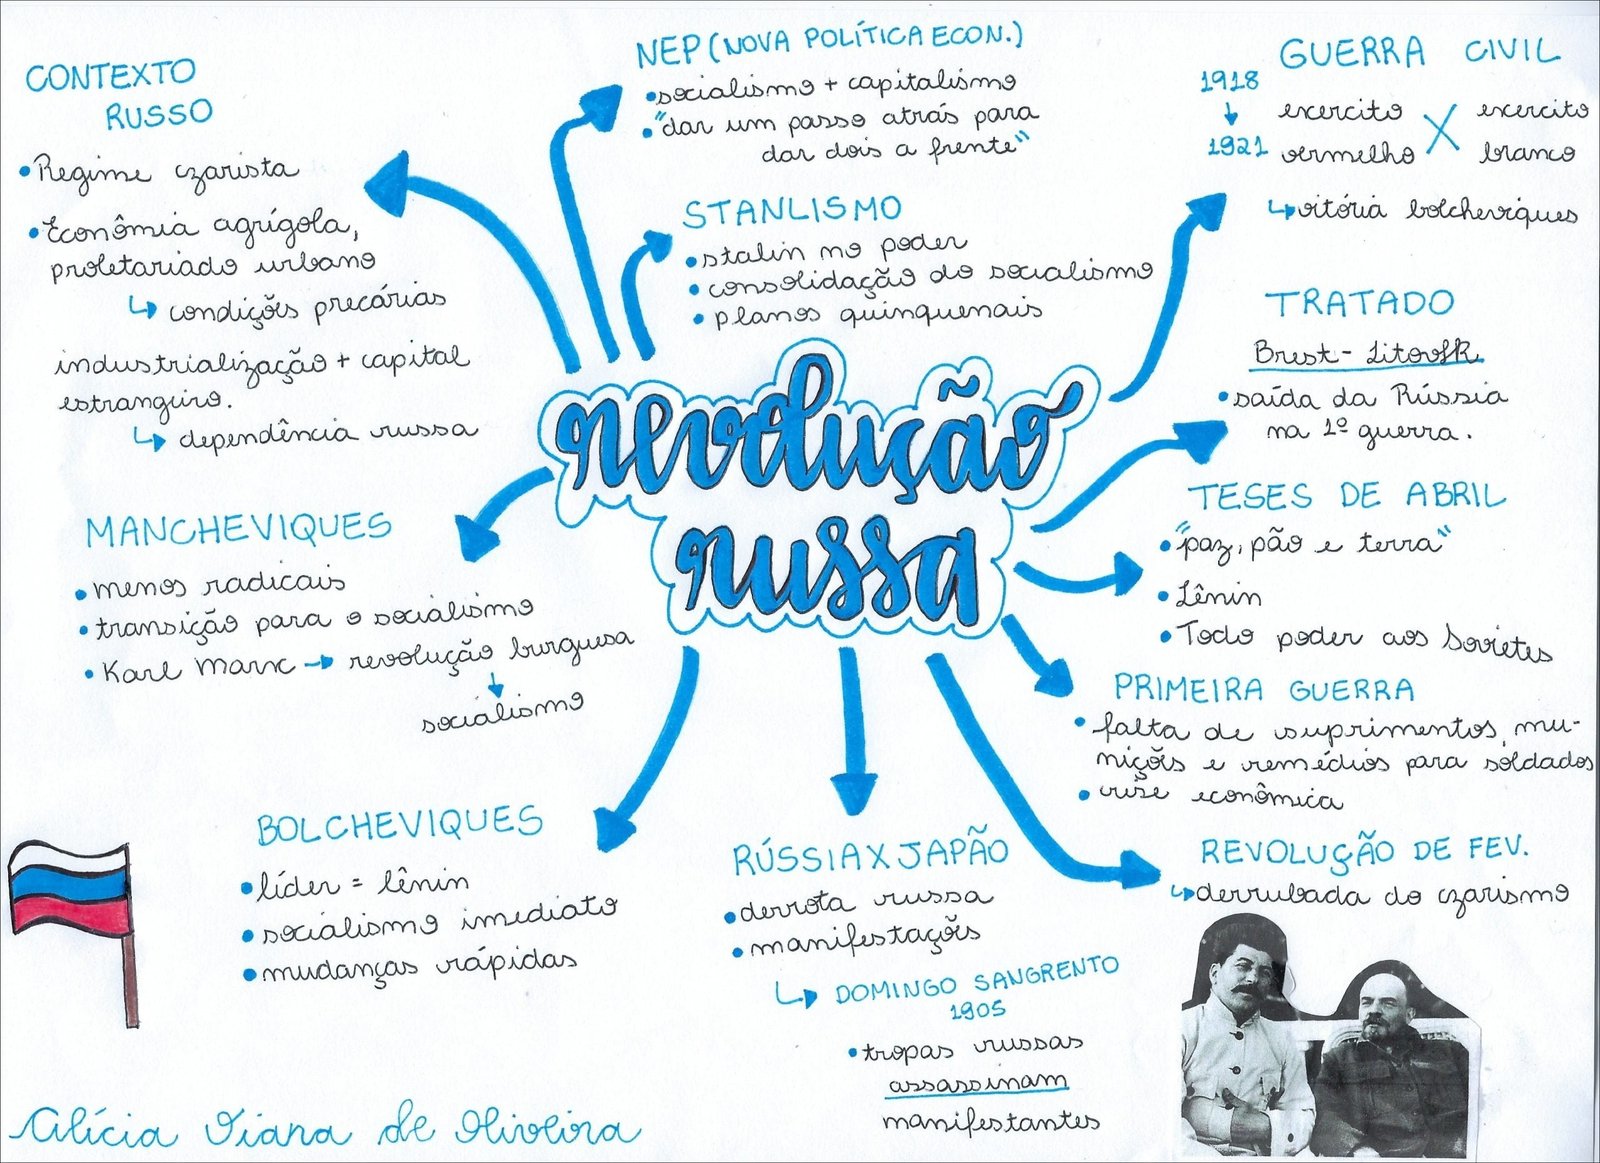 CONTEXTO
RUSSO
•Regime czarista
•Econômia agrígola,
proletariado urbano
↳ condições precárias
industrialização + capital
estrangiro.
↳ dependência russa
NEP (NOVA POLÍTICA ECON.)
•socialismo + capitalismo
•"dar um passo atrás para
dar dois a frente"
STANLISMO
•stalin no poder
•consolidação do socialismo
•planos quinquenais
GUERRA CIVIL
1918
↓
1921
exercito X exercito
vermelho branco
↳vitória bolcheviques
TRATADO
Brest-Litovsk
•saída da Rússia
na 1º guerra.
TESES DE ABRIL
•"paz, pão e terra"
•Lênin
•Todo poder aos Soviétes
revolução
russa
MANCHEVIQUES
•menos radicais
•transição para o socialismo
•Karl Marx → revolução burguesa
↓
socialismo
PRIMEIRA GUERRA
•falta de suprimentos, mu-
nições e remédios para soldados
•crise econômica
BOLCHEVIQUES
•líder = lênin
•socialismo imediato
•mudanças rápidas
RÚSSIA X JAPÃO
•derrota russa
•manifestações
↳ DOMINGO SANGRENTO
1905
•tropas russas
assassinam
manifestantes
REVOLUÇÃO DE FEV.
↳derrubada do czarismo
Alícia Viana de Oliveira